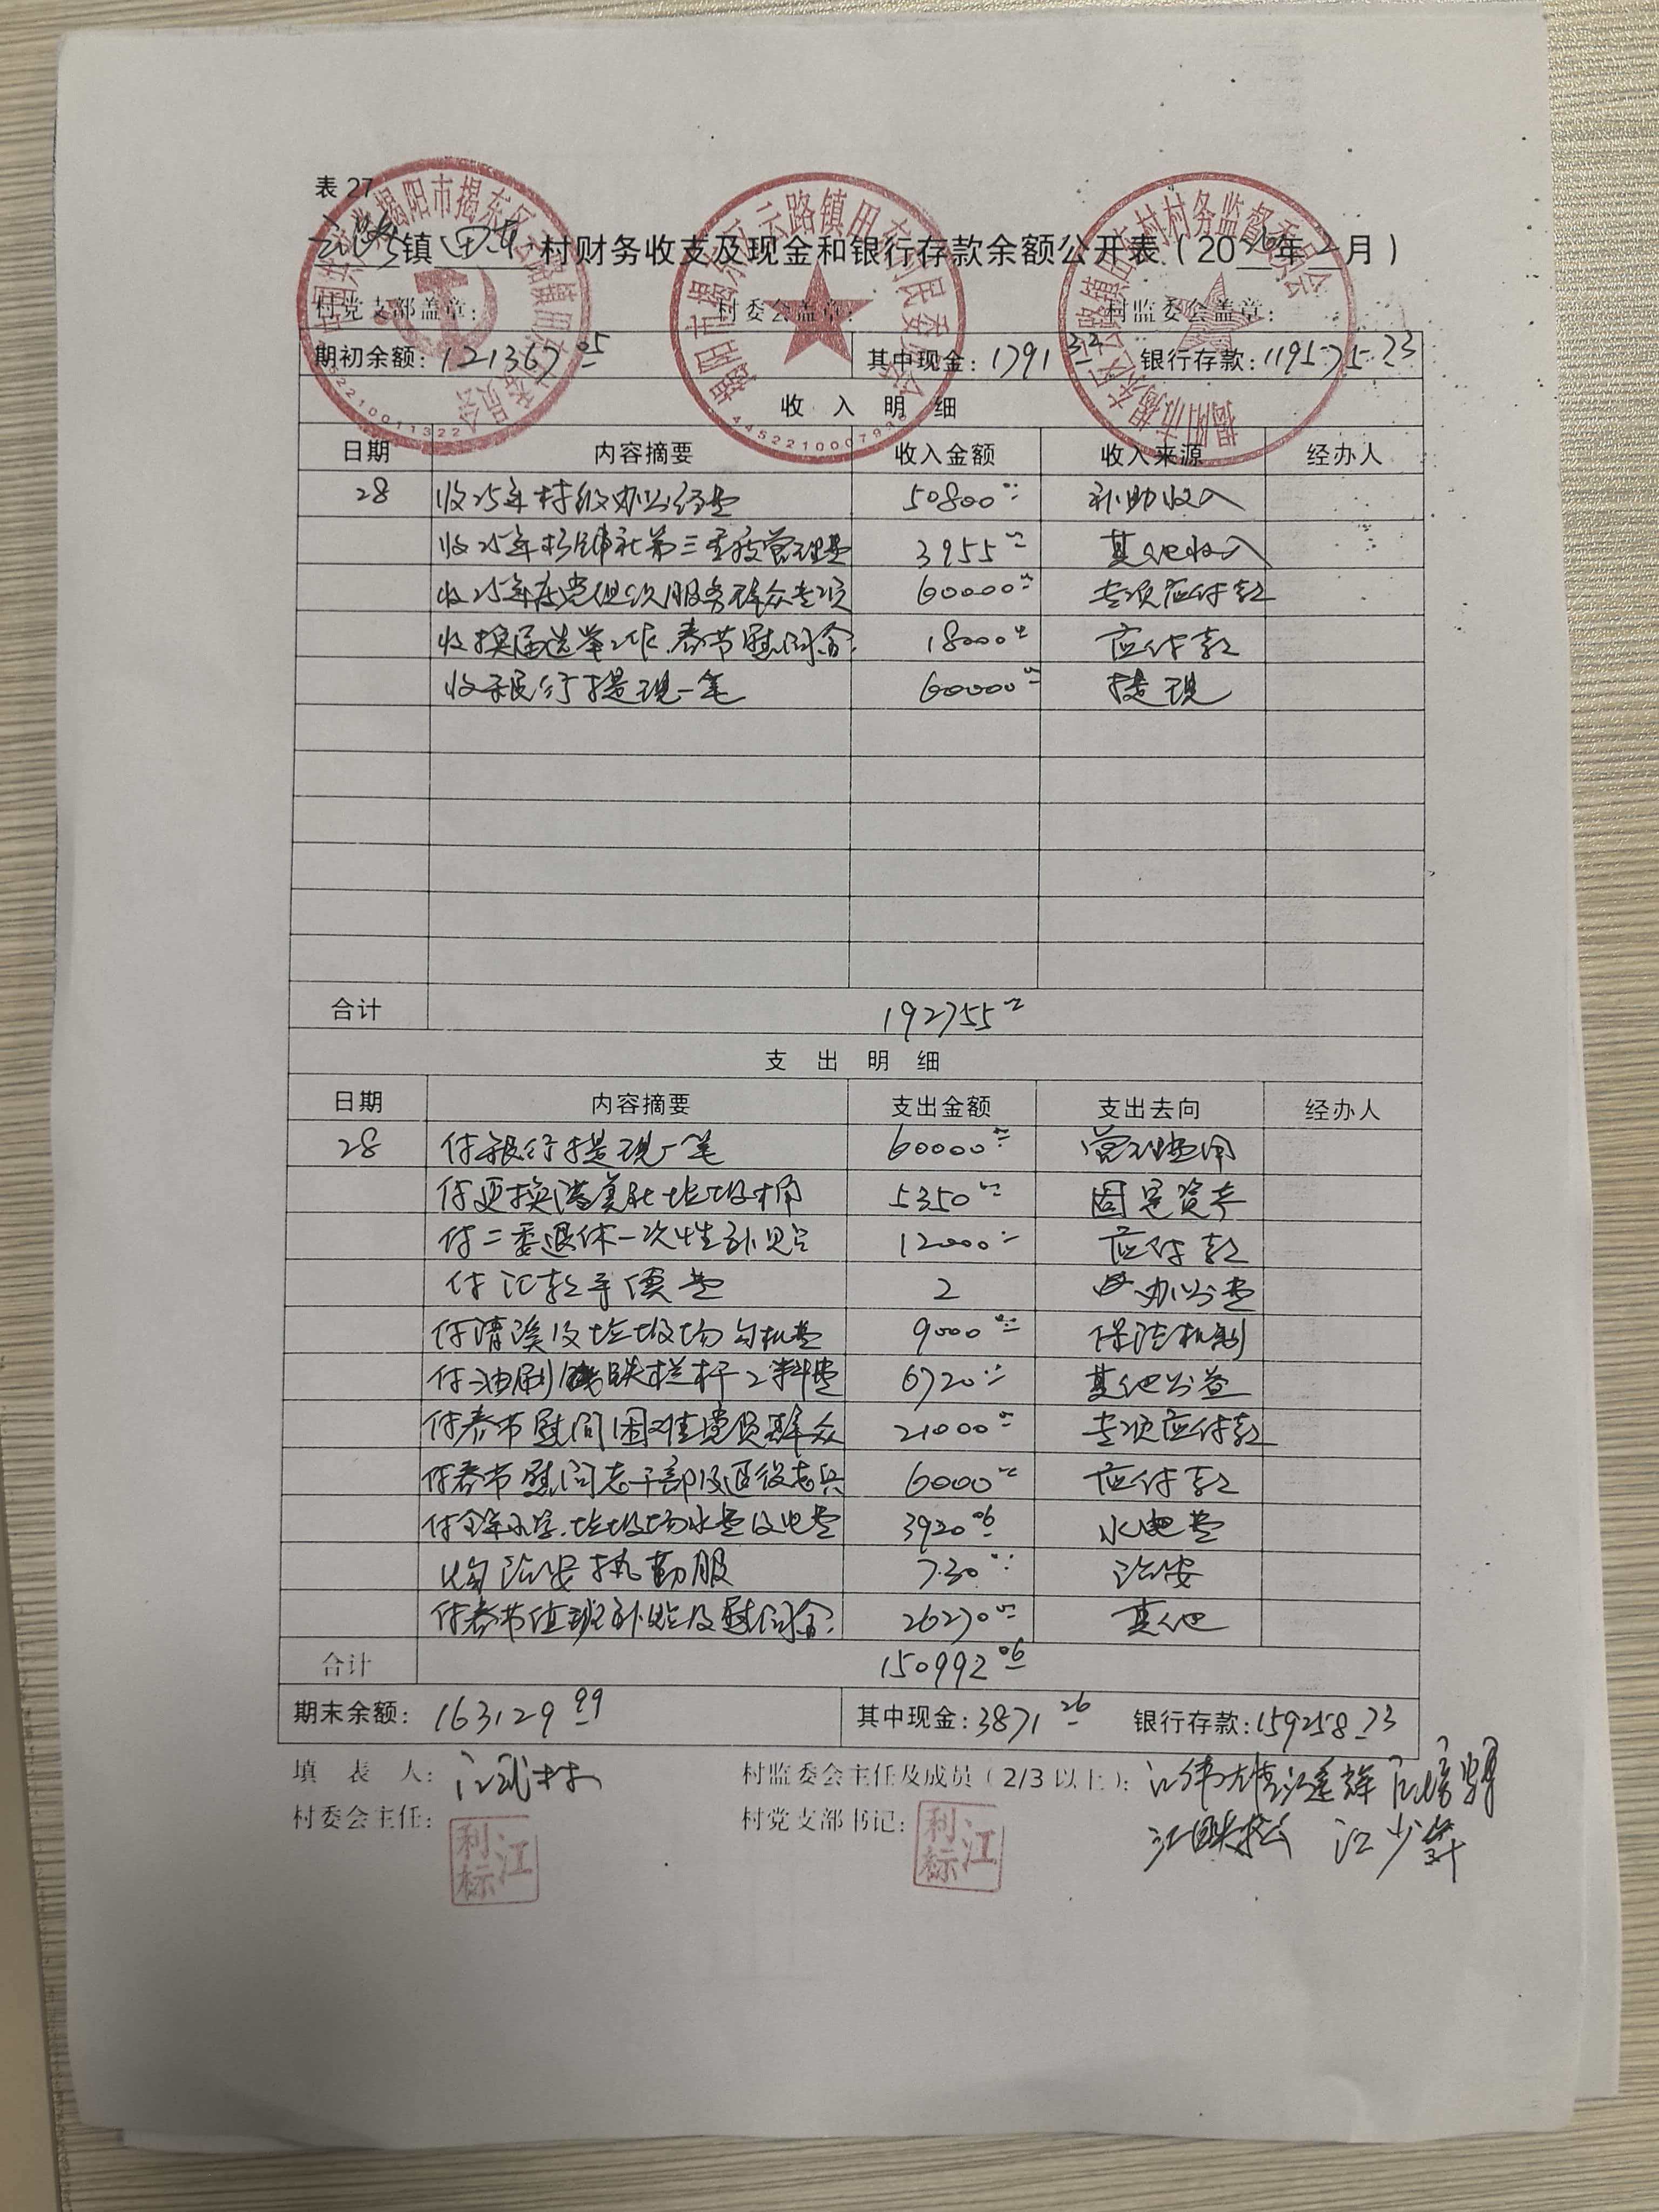 表 27
云路镇田东村财务收支及现金和银行存款余额公开表（2026年2月）
村党支部盖章： 村委会盖章： 村监委会盖章：
期初余额：121367.05 其中现金：1791.32 银行存款：119575.73
收 入 明 细
日期 内容摘要 收入金额 收入来源 经办人
28 收25年村级办公经费 50800.00 补助收入
收25年 社第三季度管理费 3955.00 其他收入
收25年度党组织服务群众专项 60000.00 专项应付款
收换届选举工作、春节慰问金 18000.00 应付款
收银行提现一笔 60000.00 提现
合计 192755.00
支 出 明 细
日期 内容摘要 支出金额 支出去向 经办人
28 付银行提现一笔 60000.00 管理费用
付更换 美社垃圾桶 5350.00 固定资产
付二委退休一次性补贴 12000.00 应付款
付汇款手续费 2 办公费
付清溪及垃圾场勾机费 9000.00 保洁机制
付油刷 铁栏杆工料费 6720.00 其他公益
付春节慰问困难党员群众 21000.00 专项应付款
付春节慰问老干部及退役老兵 6000.00 应付款
付全年 、垃圾场水费及电费 3920.06 水电费
购治安执勤服 730.00 治安
付春节值班补贴及慰问金 26270.00 其他
合计 150992.06
期末余额：163129.99 其中现金：3871.26 银行存款：159258.73
填 表 人：江武林 村监委会主任及成员（2/3 以上）：江伟雄 江 辉
村委会主任： 村党支部书记： 江 松 江少
江利标 江利标
中国共 揭阳市揭东区云路镇田东
揭阳市揭东区云路镇田东村民委员会
揭阳市揭东区云路镇田东村村务监督委员会